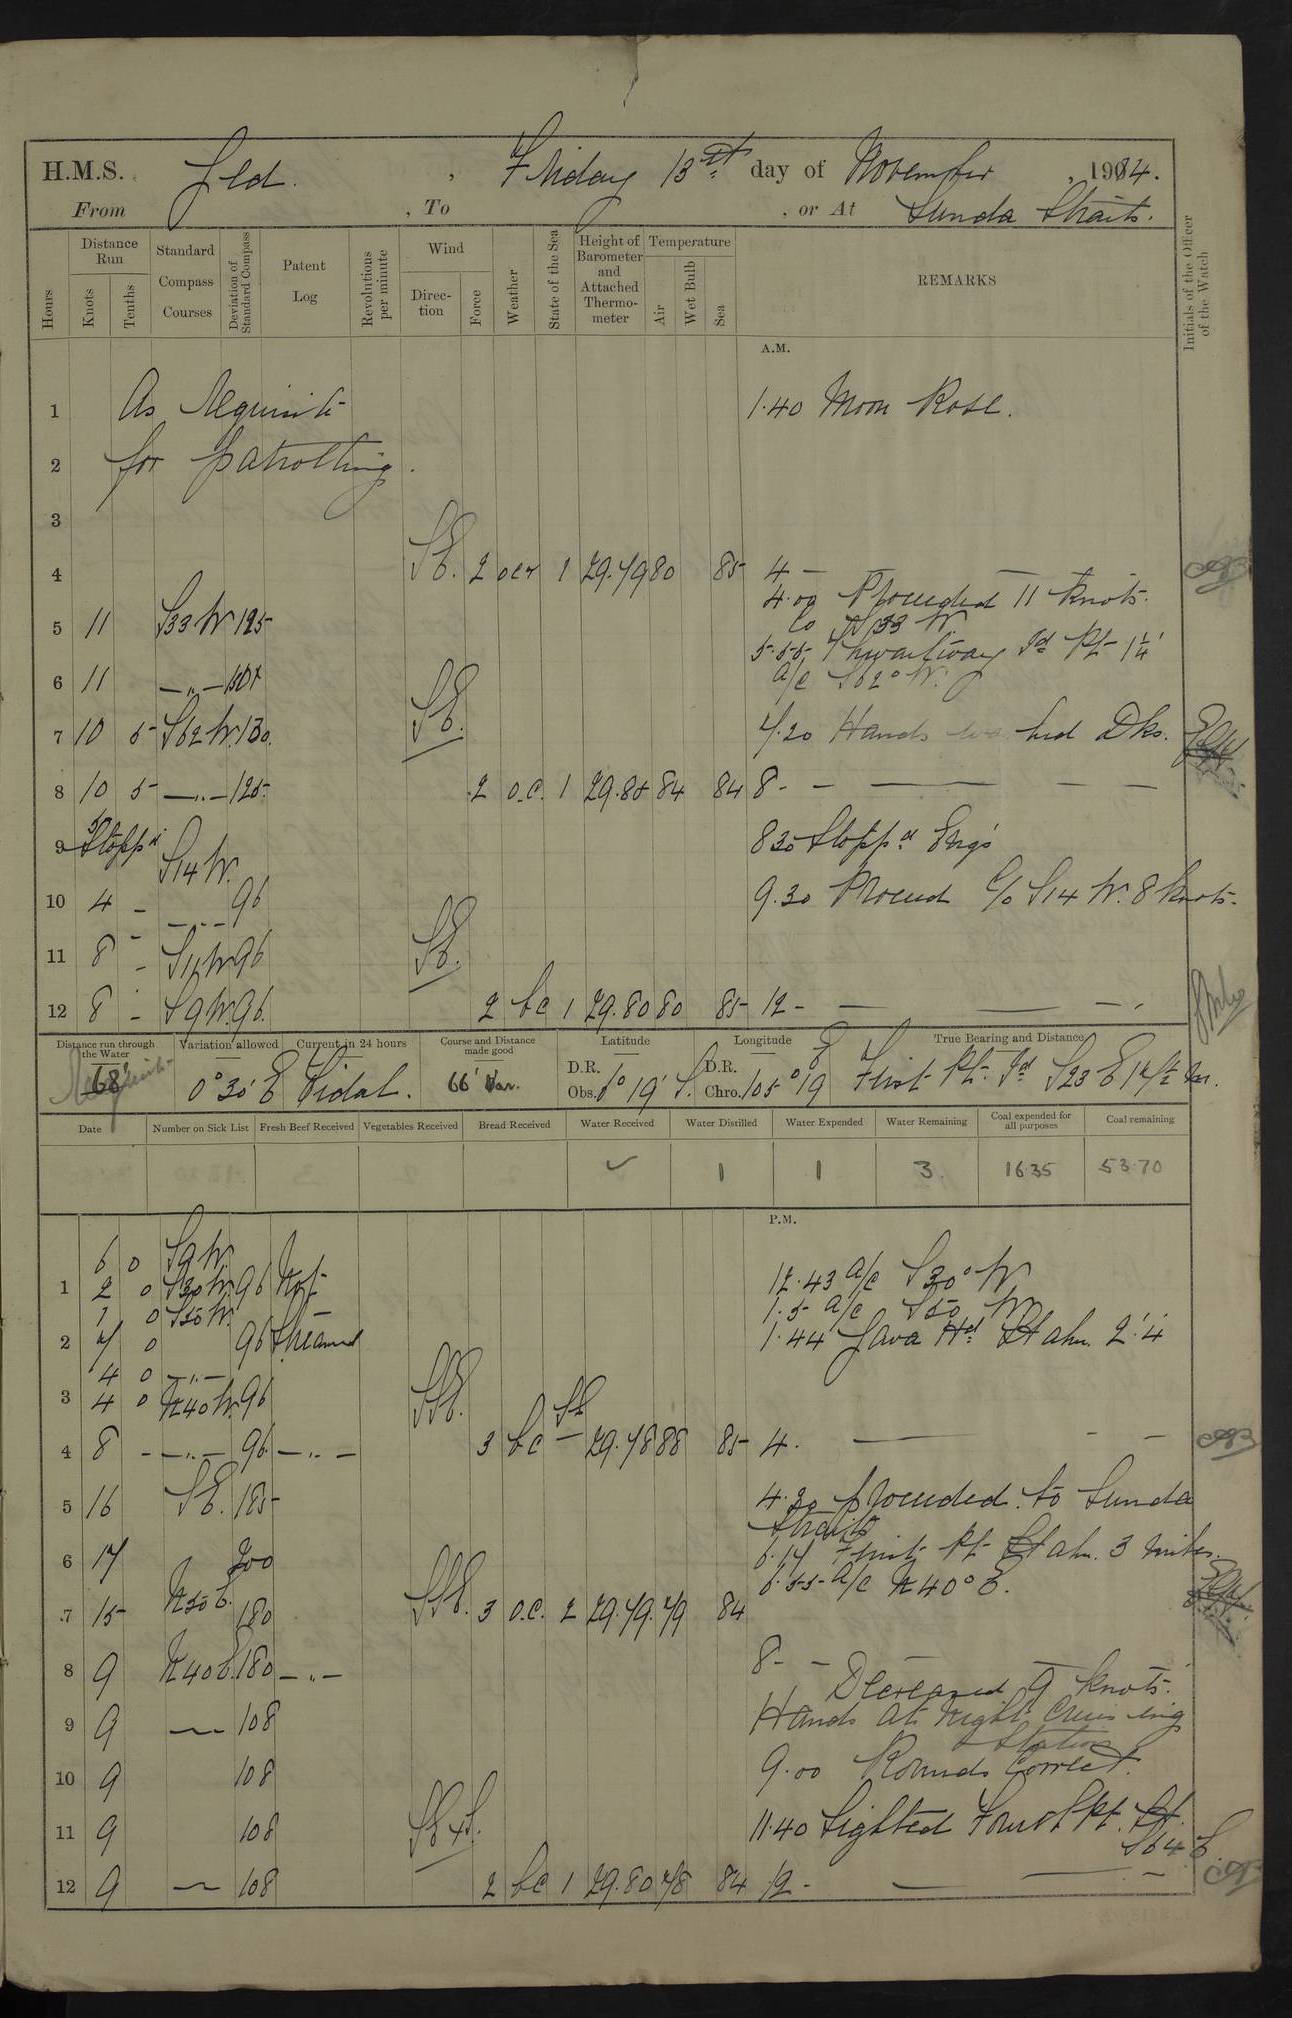 H.M.S. Jed. , Friday 13th day of November , 1914.
From , To , or At Sunda Straits.
Hours
Distance Run
Knots
Tenths
Standard Compass Courses
Deviation of Standard Compass
Patent Log
Revolutions per minute
Wind
Direction
Force
Weather
State of the Sea
Height of Barometer and Attached Thermometer
Temperature
Air
Wet Bulb
Sea
REMARKS
Initials of the Officer of the Watch
A.M.
1 As Requisite 1.40 Moon Rose.
2 for patrolling.
3
4 SE. 2 29.79 80 85 4 —
4.00 Proceeded 11 Knots.
Co S 33 W.
5 11 S33 W 125
5.55 Thwartway Id Pt 1¼'
a/c S62° W.
6 11 — " —
7 10 5 S62 W. 130. SE. 7.20 Hands washed Dks.
8 10 5 — " — 125. 2 o.c. 1 29.85 84 84 8 - —
9 Stoppd S14 W. 8 30 Stoppd Engs
10 4 - — " — 96 9.30 Proceed C/o S14 W. 8 Knots.
11 8 - S14W 96 SE.
12 8 - S9W. 96. 2 bc 1 29.80 80 85 12 - —
Distance run through the Water
68'
Variation allowed
0° 30' E
Current in 24 hours
Tidal.
Course and Distance made good
66' Var.
Latitude
D.R.
Obs. 6° 19' S.
Longitude
D.R.
Chro. 105° 19 E
True Bearing and Distance
First Pt. Id S23 E 17½ m.
Date
Number on Sick List
Fresh Beef Received
Vegetables Received
Bread Received
Water Received
Water Distilled
Water Expended
Water Remaining
Coal expended for all purposes
Coal remaining
✓ 1 1 3. 16.35 53.70
P.M.
6 0 S9 W.
1 2 0 S30 W. 96 Not 12.43 a/c S30° W
1 0 S50 W. 1.5 a/c S50 W
2 7 0 96 Streamed 1.44 Java Hd Lt abm. 2'.4
4 0 — " —
3 4 0 N40 W. 96 SSE.
4 8 - — " — 96 — " — 3 bc 29.78 88 85 4. —
5 16 SE. 185 4.20 proceeded to Sunda
Straits
6 17 200 6.17 First Pt Lt abm. 3 miles.
6.55 a/c N40° E.
7 15 N50 E. 180 SSE. 3 o.c. 2 29.79. 79 84
8 9 N40 E. 180 — " — 8 - —
Decreased 9 knots.
9 9 — 108 Hands at Night Cruising
Station
10 9 108 9.00 Rounds Correct.
11 9 108 11.40 Sighted Fourth Pt. Lt.
S64 E.
12 9 — 108 2 bc 1 29.80 78 84 12 - —